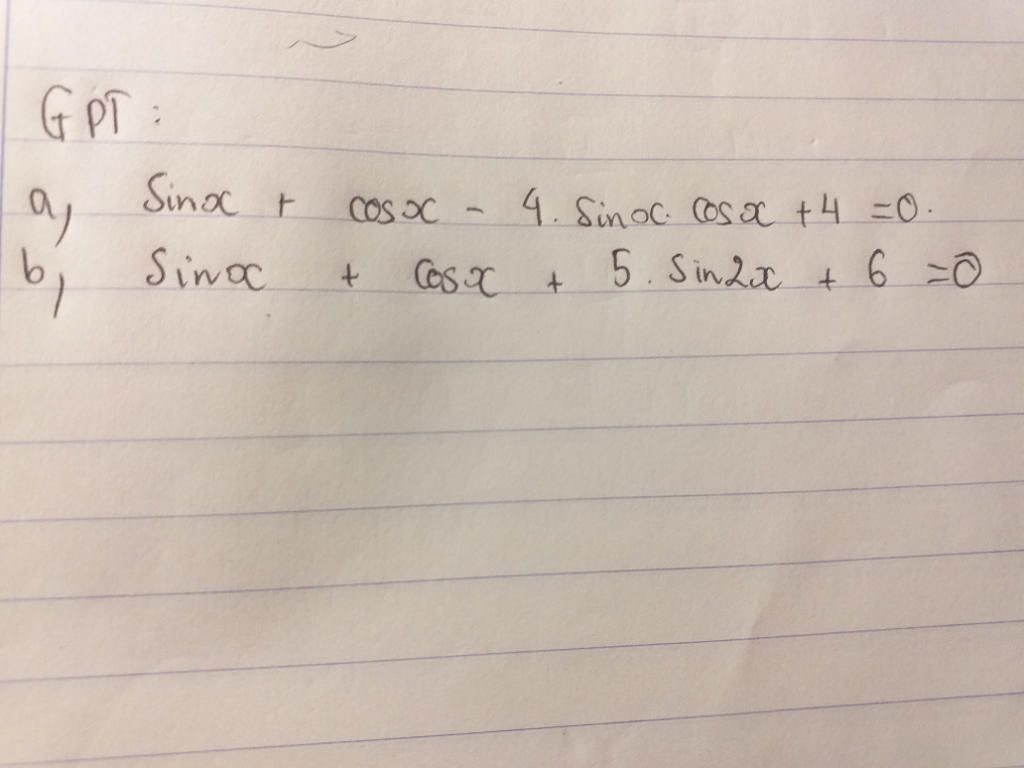 GPT :
a, Sinx + cosx - 4. Sinx. Cosx + 4 = 0.
b, Sinx + Cosx + 5. Sin2x + 6 = 0